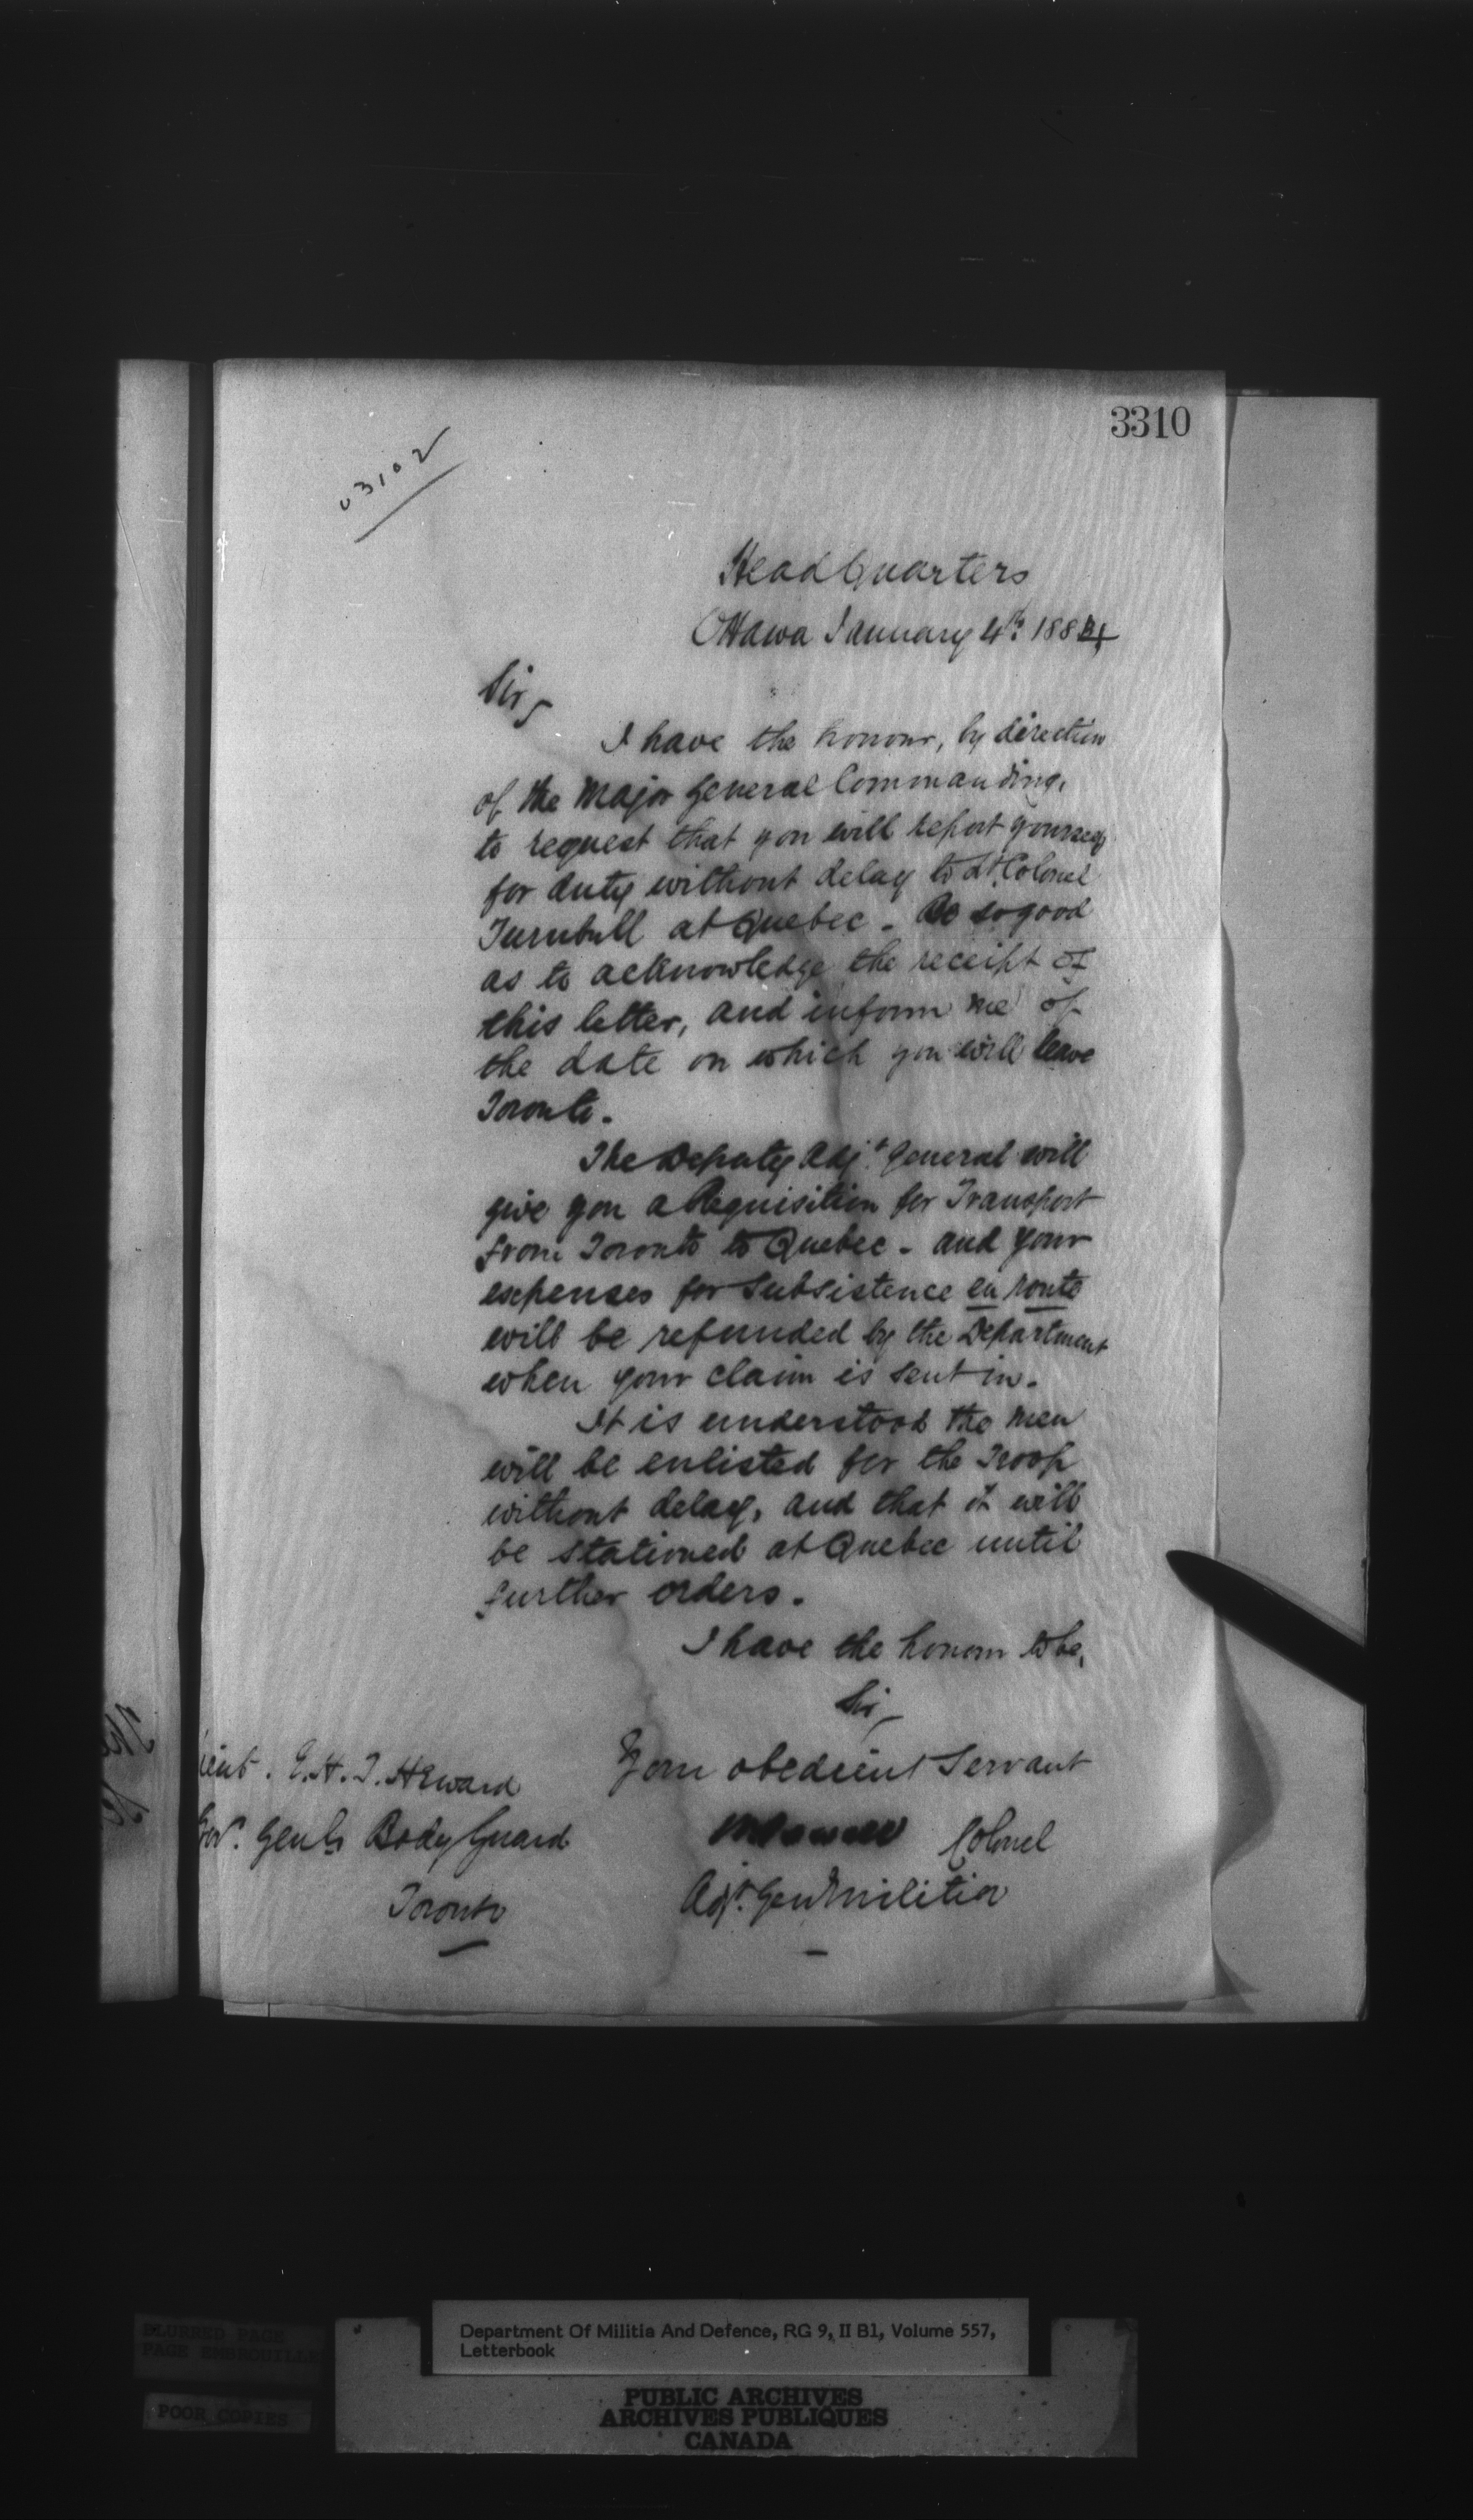 3310
03102
Head Quarters
Ottawa January 4th 1884
Sir,
I have the honour, by direction
of the Major General Commanding,
to request that you will report yourself
for duty without delay to Lt. Colonel
Turnbull at Quebec. Be so good
as to acknowledge the receipt of
this letter, and inform me of
the date on which you will leave
Toronto.
The Deputy Adjt. General will
give you a Requisition for Transport
from Toronto to Quebec - and your
expenses for Subsistence en route
will be refunded by the Department
when your claim is sent in.
It is understood the men
will be enlisted for the Troop
without delay, and that it will
be stationed at Quebec until
further orders.
I have the honour to be,
Sir,
Your obedient Servant
Colonel
Adjt. Genl Militia
ieut. E.H.T. Heward
Gov. Genls Body Guard
Toronto
Department Of Militia And Defence, RG 9, II B1, Volume 557,
Letterbook
BLURRED PAGE
PAGE EMBROUILLE
POOR COPIES
PUBLIC ARCHIVES
ARCHIVES PUBLIQUES
CANADA